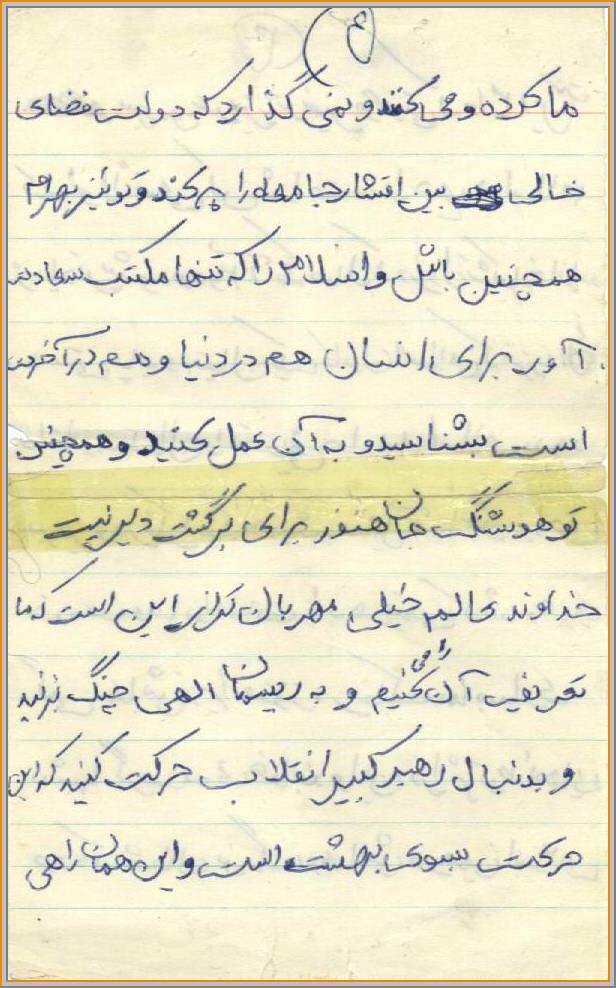 ۴
ما کرده و می کند و نمی گذارد که دولت فضای
خالی بین اقشار جامعه را پر کند و تو نیز بهرام
همچنین باش و اسلام را که تنها مکتب سعادت
آور برای انسان هم در دنیا و هم در آخرت
است بشناسید و به آن عمل کنید و همچنین
تو هوشنگ جان هنوز برای برگشت دیر نیست
خداوند عالم خیلی مهربان تر از این است که ما
تعریف آن را می کنیم و به ریسمان الهی چنگ بزنید
و بدنبال رهبر کبیر انقلاب حرکت کنید که این
حرکت بسوی بهشت است و این همان راهی